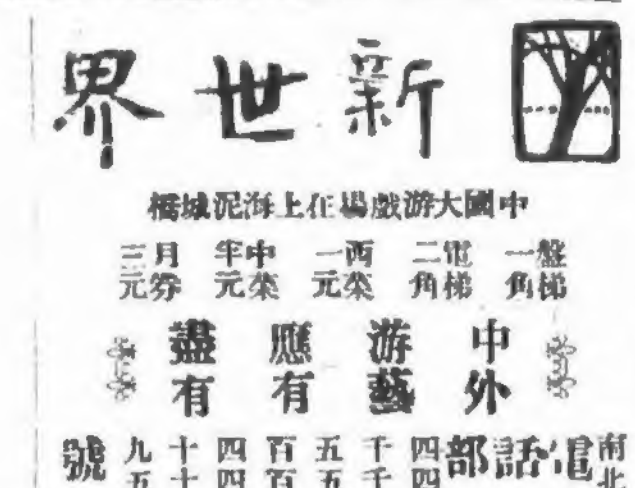 新世界
中國大游戲場在上海泥城橋
盤梯一角 電梯二角 西菜一元 中菜半元 月券三元
中外游藝應有盡有
南電話部四千五百四十九號
北四千五百四十五